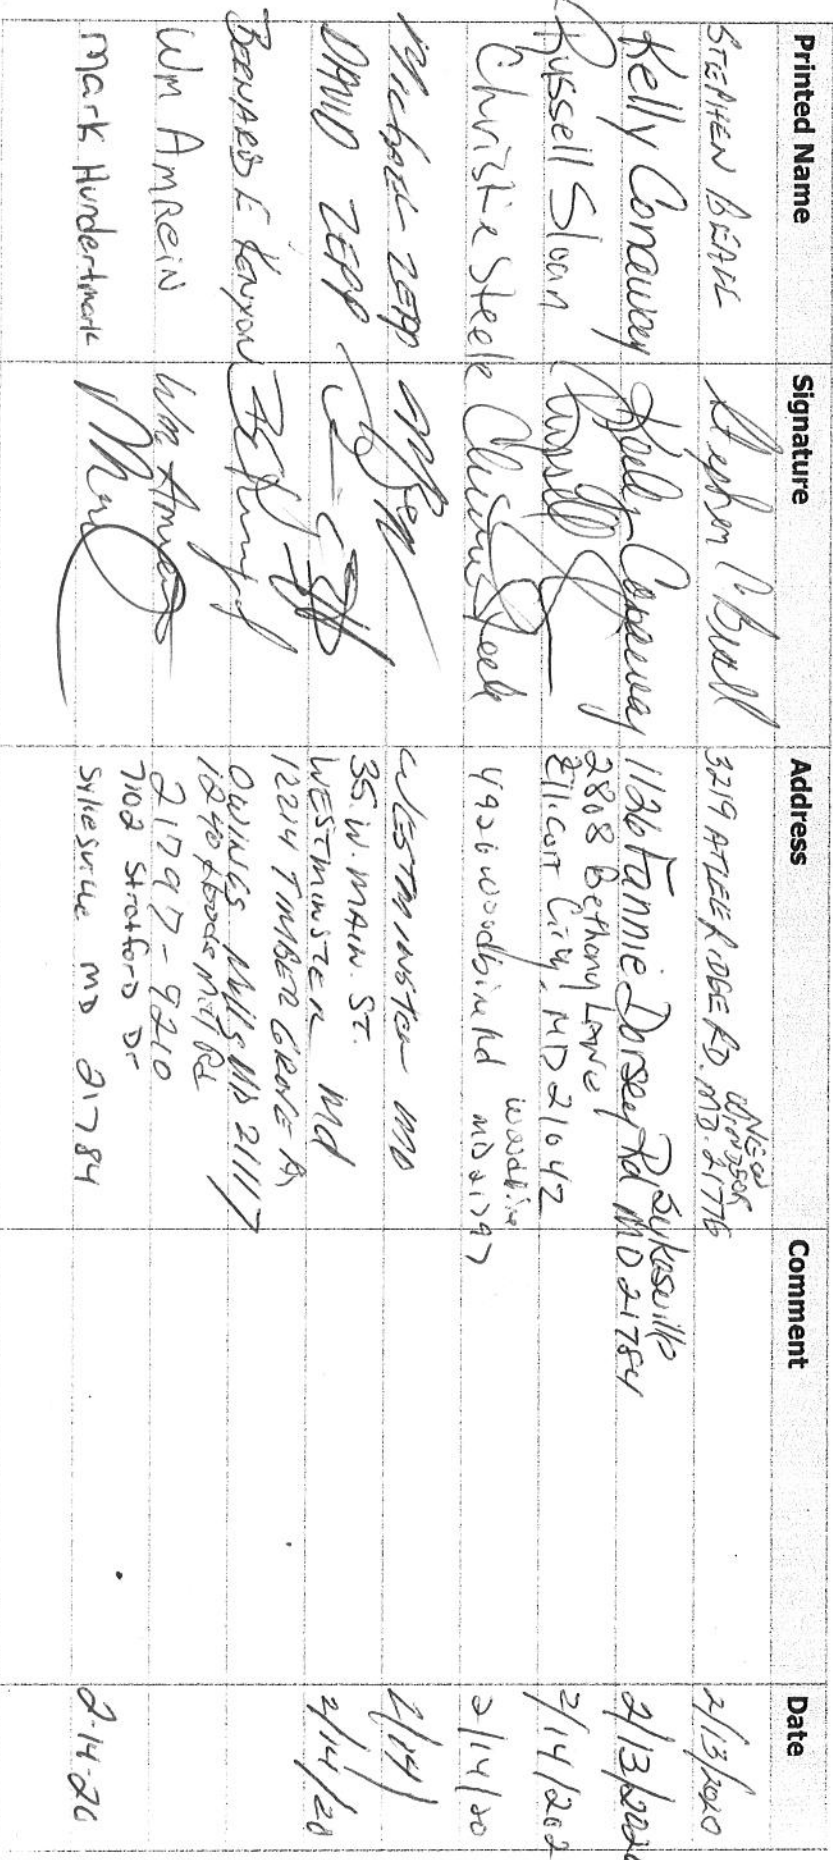 Printed Name Signature Address Comment Date
STEPHEN BEALL Stephen C Beall 3219 ATLEE RIDGE RD. NEW WINDSOR MD. 21776 2/13/2020
Kelly Conaway Kelly Conaway 1126 Fannie Dorsey Rd Sykesville MD 21784 2/13/2020
Russell Sloan Russell 2808 Bethany Lane
Ellicott City, MD 21042 2/14/202
Christie Steele Christie Steele 4926 woodbine Rd woodbine MD 21797 2/14/20
Michael ZEPP WESTMINSTER MD 2/14/
DAVID ZEPP 35. W. MAIN. ST.
WESTMINSTER Md 2/14/20
BERNARD E KENYON 12214 TIMBER GROVE
OWINGS Mills MD 21117
Wm AMREIN Wm Amrein 1240 Hoods Mill Rd
21797-9210
Mark Hundertmark 7102 Stratford Dr
Sykesville MD 21784 2-14-20